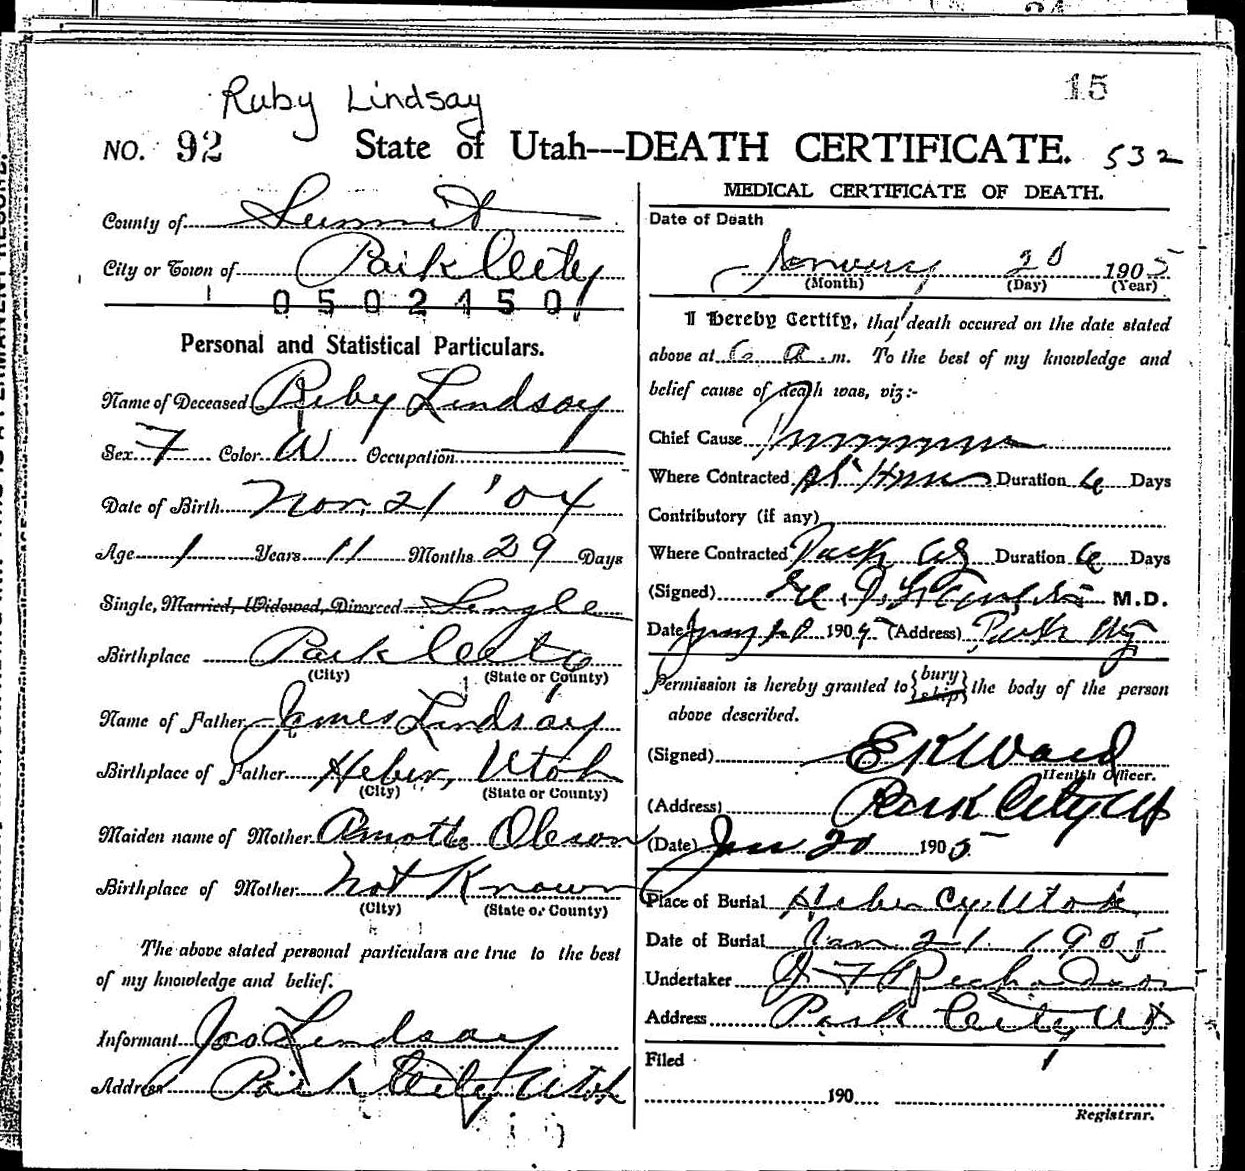 15
Ruby Lindsay
NO. 92 State of Utah---DEATH CERTIFICATE. 532
County of Summit
City or Town of Park City
0502450
Personal and Statistical Particulars.
Name of Deceased Ruby Lindsay
Sex F Color W Occupation
Date of Birth Nov. 21 '04
Age 1 Years 11 Months 29 Days
Single, Married, Widowed, Divorced Single
Birthplace Park City
(City) (State or County)
Name of Father James Lindsay
Birthplace of Father Heber, Utah
(City) (State or County)
Maiden name of Mother Oleson
Birthplace of Mother Not Known
(City) (State or County)
The above stated personal particulars are true to the best
of my knowledge and belief.
Informant Jas Lindsay
Address Park City Utah
MEDICAL CERTIFICATE OF DEATH.
Date of Death
January 20 1905
(Month) (Day) (Year)
I Hereby Certify, that death occured on the date stated
above at 6 a.m. To the best of my knowledge and
belief cause of death was, viz:-
Chief Cause
Where Contracted At Home Duration Days
Contributory (if any)
Where Contracted Park City Duration Days
(Signed) M.D.
Date 190 (Address) Park City
Permission is hereby granted to {bury ship} the body of the person
above described.
(Signed) E K Ward
Health Officer.
(Address) Park City Ut
(Date) Jan 20 1905
Place of Burial Heber Cy. Utah
Date of Burial Jan 21 1905
Undertaker J F Richardson
Address Park City Ut
Filed
190
Registrar.